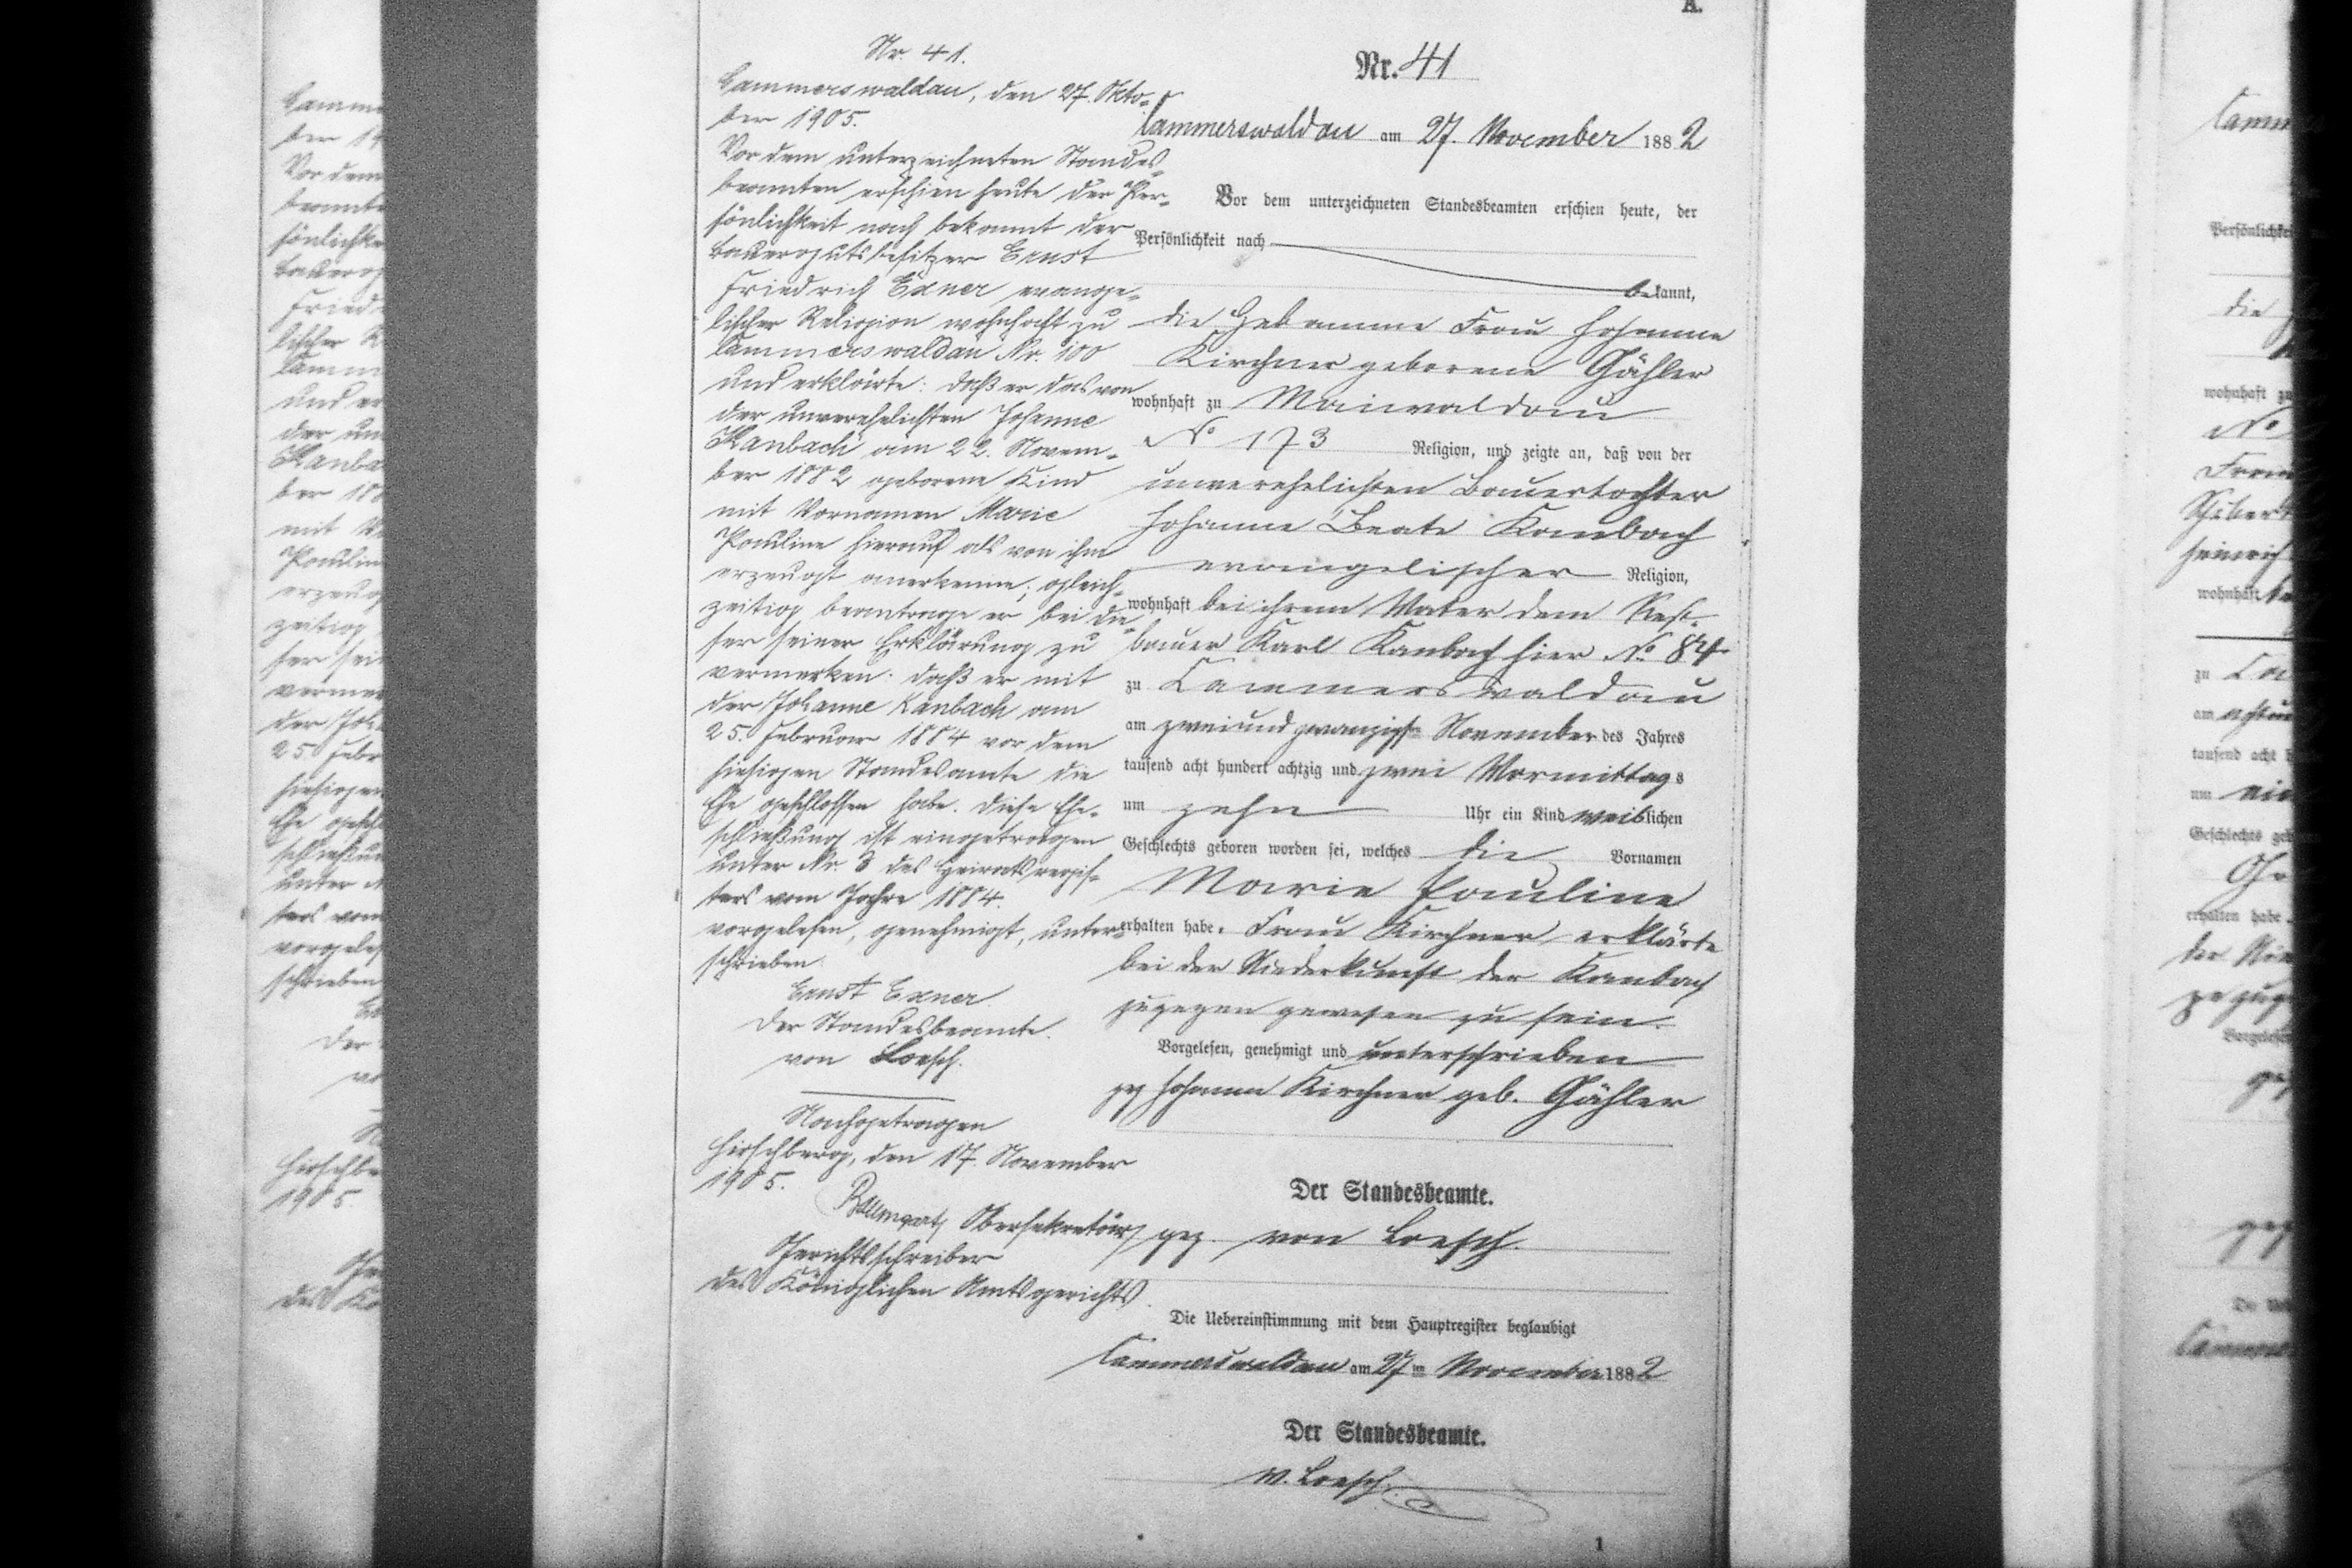 A.
Nr. 41.
Cammerswaldau, den 27. Okto-
ber 1905.
Vor dem unterzeichneten Standes-
beamten erschien heute der Per-
sönlichkeit nach bekannt der
Bauergutsbesitzer Ernst
Friedrich Exner evange-
lischer Religion wohnhaft zu
Cammerswaldau Nr. 100
und erklärte: daß er das von
der unverehelichten Johanne
Kanbach am 22. Novem-
ber 1882 geborene Kind
mit Vornamen Marie
Pauline hierauf als von ihm
erzeugt anerkenne; gleich-
zeitig beantrage er bei die-
ser seiner Erklärung zu
vermerken: daß er mit
der Johanne Kanbach am
25. Februar 1884 vor dem
hiesigen Standesamte die
Ehe geschlossen habe. Diese Ehe-
schließung ist eingetragen
unter Nr. 3 des Heiratsregis-
ters vom Jahre 1884.
vorgelesen, genehmigt, unter-
schrieben.
Ernst Exner
Der Standesbeamte.
von Loesch.
Nachgetragen
Hirschberg, den 17. November
1905.
Baumgart, Obersekretär,
Gerichtsschreiber
des Königlichen Amtsgerichts.
Nr. 41
Cammerswaldau am 27. November 1882
Vor dem unterzeichneten Standesbeamten erschien heute, der
Persönlichkeit nach
bekannt,
die Hebamme Frau Johanne
Kirchner geborene Gähler
wohnhaft zu Maiwaldau
No 173 Religion, und zeigte an, daß von der
unverehelichten Bauertochter
Johanne Beate Kanbach
evangelischer Religion,
wohnhaft bei ihrem Vater dem Rest-
bauer Karl Kanbach hier No 84
zu Cammerswaldau
am zweiundzwanzigsten November des Jahres
tausend acht hundert achtzig und zwei Vormittags
um zehn Uhr ein Kind weiblichen
Geschlechts geboren worden sei, welches die Vornamen
Marie Pauline
erhalten habe. Frau Kirchner erklärte
bei der Niederkunft der Kanbach
zugegen gewesen zu sein.
Vorgelesen, genehmigt und unterschrieben
gez Johanne Kirchner geb. Gähler
Der Standesbeamte.
gez. von Loesch.
Die Uebereinstimmung mit dem Hauptregister beglaubigt
Cammerswaldau am 27ten November 1882
Der Standesbeamte.
v. Loesch.
1